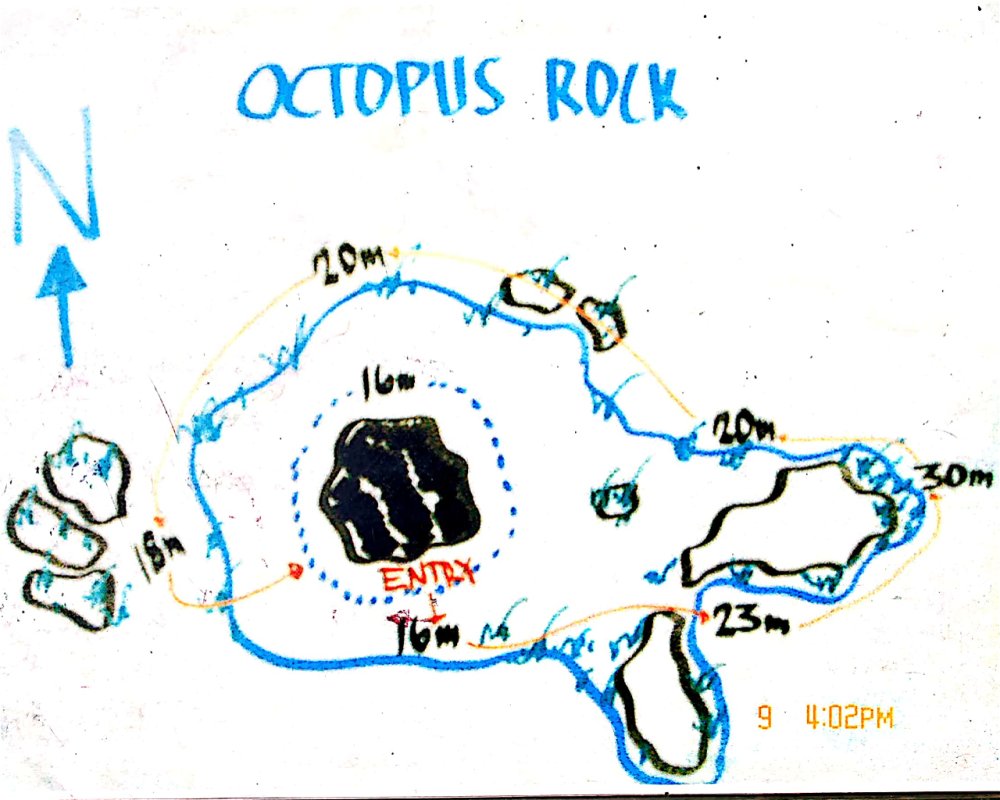 OCTOPUS ROCK
N
20m
16m
20m
30m
18m
ENTRY
16m
23m
9 4:02PM